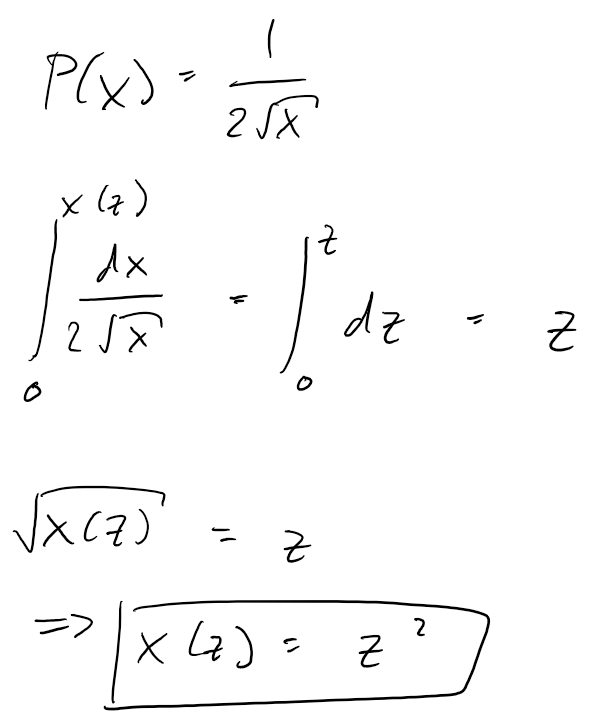 P(x) = 1/(2√x)
∫₀^{x(z)} dx/(2√x) = ∫₀^z dz = z
√x(z) = z
=> x(z) = z²